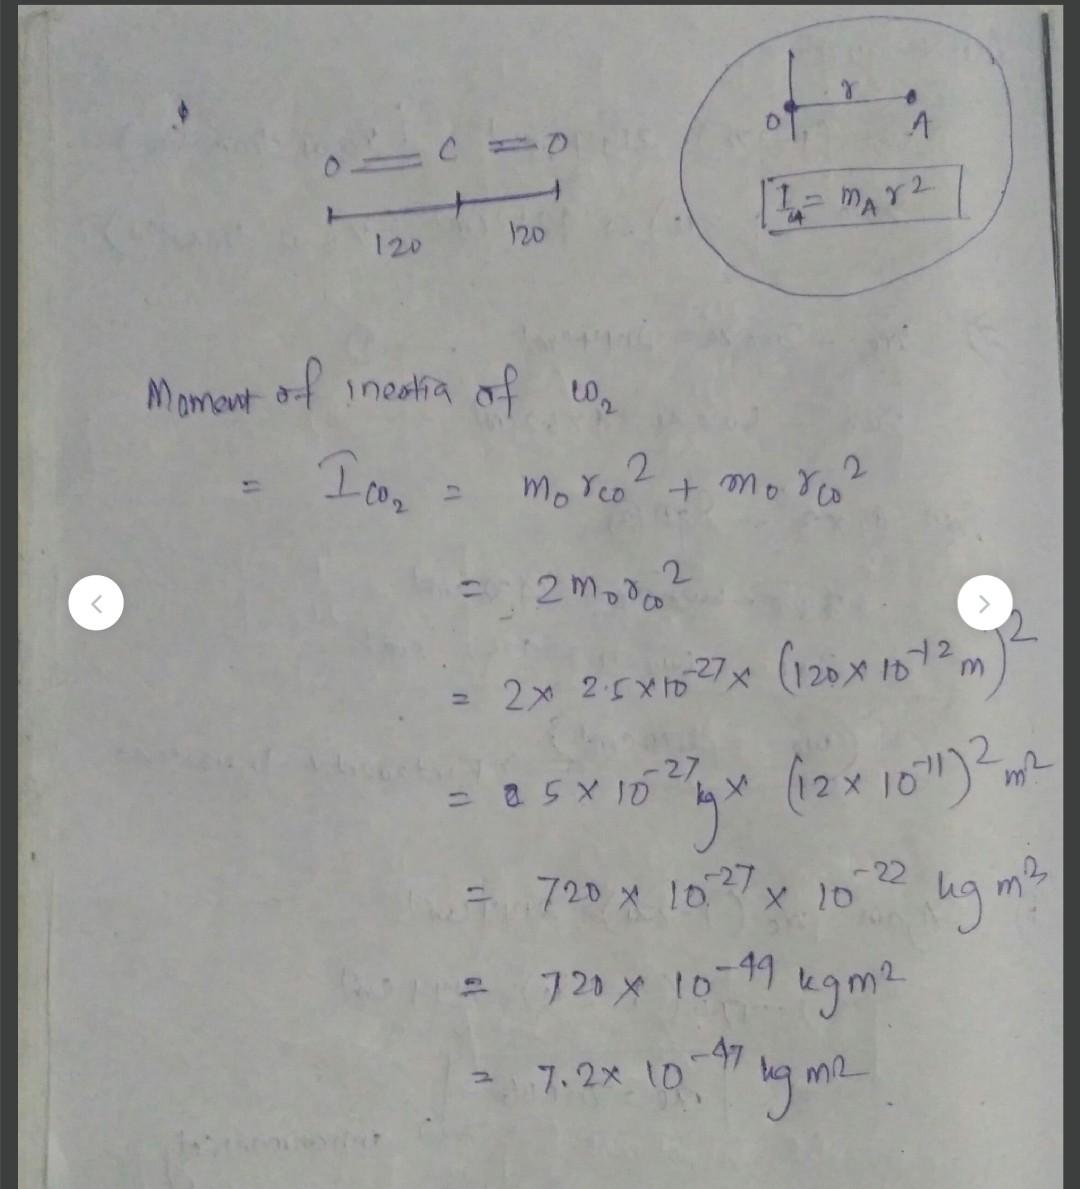 O = C = O
120 120
O r A
I_A = m_A r^2
Moment of inertia of CO2
= I_CO2 = m_O r_CO^2 + m_O r_CO^2
= 2 m_O r_CO^2
= 2 x 2.5 x 10^-27 x (120 x 10^-12 m)^2
= 5 x 10^-27 kg x (12 x 10^-11)^2 m^2
= 720 x 10^-27 x 10^-22 kg m^2
= 720 x 10^-49 kg m^2
= 7.2 x 10^-47 kg m^2